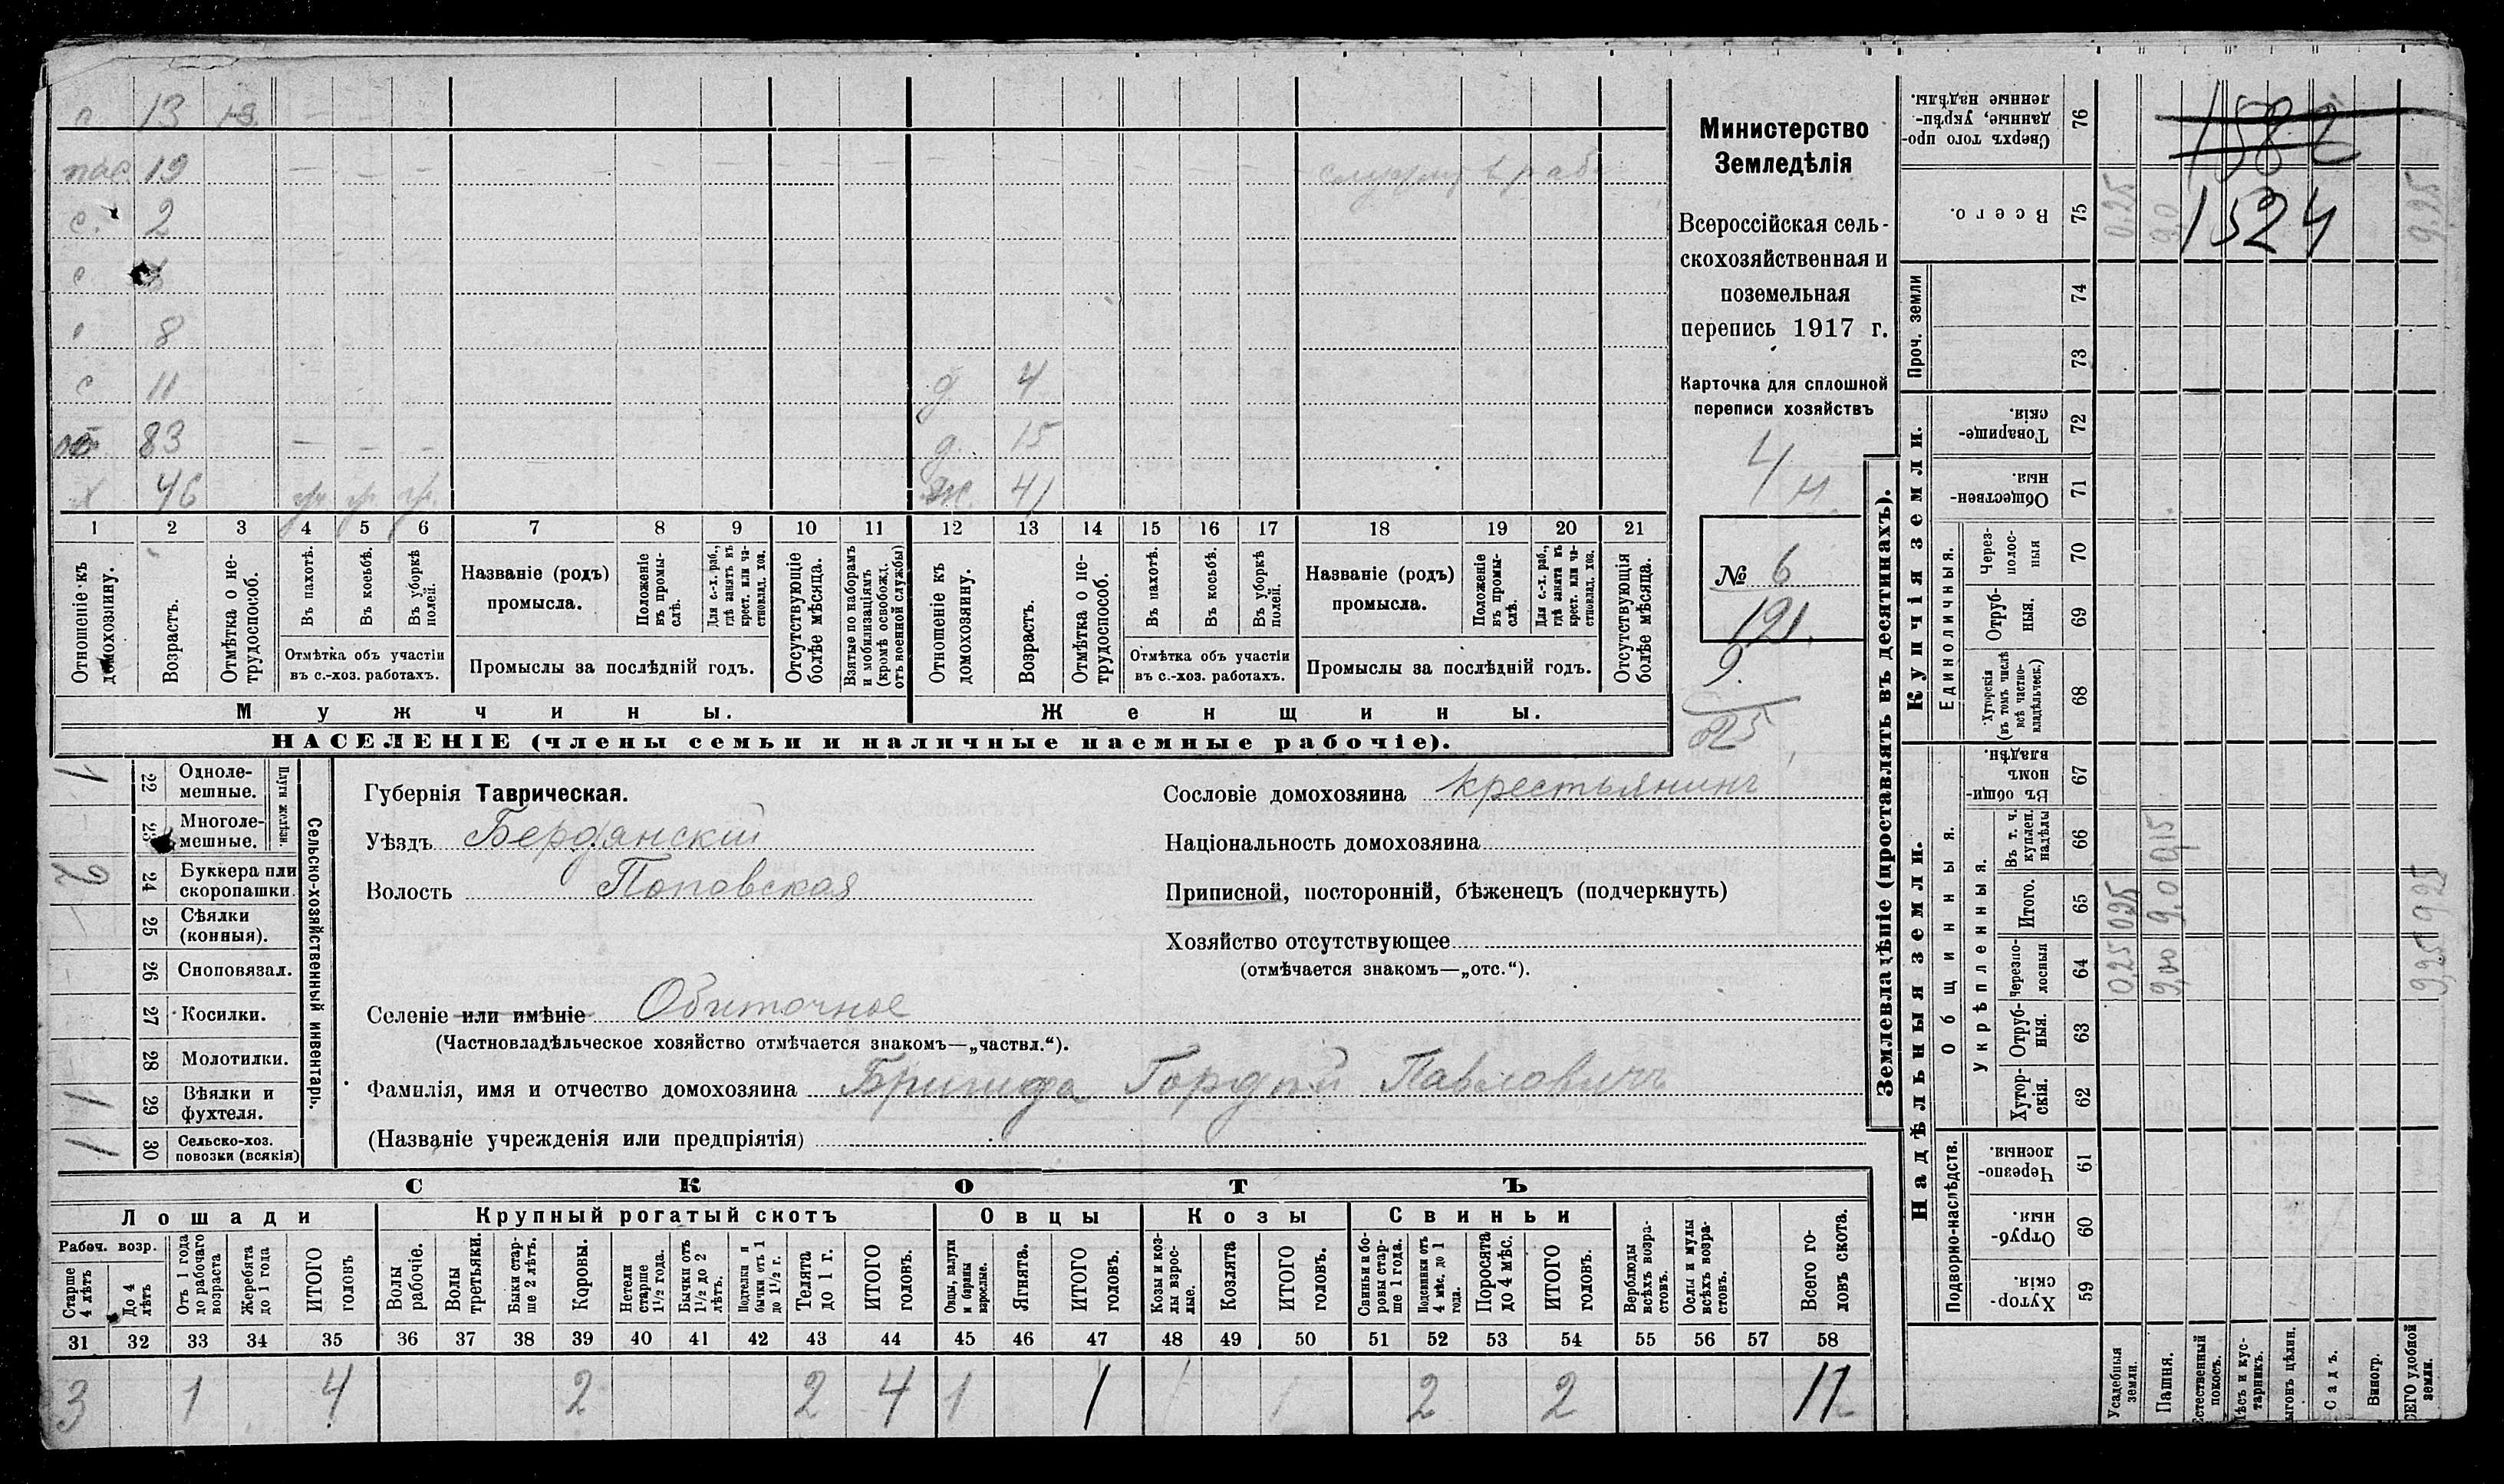 с 13 13
пас. 19
с. 2
с
с 8
с 11 д 4
об 83 д. 15
х 46 ж. 41
1 2 3 4 5 6 7 8 9 10 11 12 13 14 15 16 17 18 19 20 21
Отношеніе къ домохозяину.
Возрастъ.
Отмѣтка о не-
трудоспособ.
Въ пахотѣ.
Въ косьбѣ.
Въ уборкѣ
полей.
Отмѣтка объ участіи
въ с.-хоз. работахъ.
Названіе (родъ)
промысла.
Положеніе
въ промы-
слѣ.
Для с.-х. раб.,
гдѣ занятъ въ
крест. или ча-
стновлад. хоз.
Промыслы за послѣдній годъ.
Отсутствующіе
болѣе мѣсяца.
Взятые по наборамъ
и мобилизаціямъ
(кромѣ освобожд.
отъ военной службы)
Отношеніе къ
домохозяину.
Возрастъ.
Отмѣтка о не-
трудоспособ.
Въ пахотѣ.
Въ косьбѣ.
Въ уборкѣ
полей.
Отмѣтка объ участіи
въ с.-хоз. работахъ.
Названіе (родъ)
промысла.
Положеніе
въ промы-
слѣ.
Для с.-х. раб.,
гдѣ занята въ
крест. или ча-
стновлад. хоз.
Промыслы за послѣдній годъ.
Отсутствующія
болѣе мѣсяца.
Мужчины. Женщины.
НАСЕЛЕНІЕ (члены семьи и наличные наемные рабочіе).
Министерство
Земледѣлія
Всероссійская сель-
скохозяйственная и
поземельная
перепись 1917 г.
Карточка для сплошной
переписи хозяйствъ
4
№ 6
121.
9.
25
1 22 Одноле-
мешные.
23 Многоле-
мешные.
Плуги желѣзн.
24 Буккера или
скоропашки
25 Сѣялки
(конныя).
26 Сноповязал.
27 Косилки.
28 Молотилки.
1 29 Вѣялки и
фухтеля.
1 30 Сельско-хоз.
повозки (всякія)
Сельско-хозяйственный инвентарь.
Губернія Таврическая.
Уѣздъ Бердянскій
Волость Поповская
Селеніе или имѣніе Обиточное
(Частновладѣльческое хозяйство отмѣчается знакомъ—„частвл.“).
Фамилія, имя и отчество домохозяина Бригида Гордѣй Павловичъ
(Названіе учрежденія или предпріятія)
Сословіе домохозяина крестьянинъ
Національность домохозяина
Приписной, посторонній, бѣженецъ (подчеркнуть)
Хозяйство отсутствующее
(отмѣчается знакомъ—„отс.“).
СКОТЪ
Лошади Крупный рогатый скотъ Овцы Козы Свиньи
Рабоч. возр.
Старше
4 лѣтъ
До 4
лѣтъ
Отъ 1 года
до рабочаго
возраста
Жеребята
до 1 года
ИТОГО
головъ
Волы
рабочіе.
Волы
третьяки.
Быки стар-
ше 2 лѣтъ.
Коровы.
Нетели
старше
1½ года.
Бычки отъ
1½ до 2
лѣтъ.
Подтелки и
бычки отъ 1
до 1½ г.
Телята
до 1 г.
ИТОГО
головъ.
Овцы, валухи
и бараны
взрослые.
Ягнята.
ИТОГО
головъ.
Козы и коз-
лы взрос-
лые.
Козлята
ИТОГО
головъ.
Свиньи и бо-
ровы стар-
ше 1 года.
Подсвинки отъ
4 мѣс. до 1
года.
Поросята
до 4 мѣс.
ИТОГО
головъ.
Верблюды
всѣхъ возра-
стовъ.
Ослы и мулы
всѣхъ возра-
стовъ.
Всего го-
ловъ скота.
31 32 33 34 35 36 37 38 39 40 41 42 43 44 45 46 47 48 49 50 51 52 53 54 55 56 57 58
3 1 4 2 2 4 1 1 2 2 11
Землевладѣніе (проставлять въ десятинахъ).
Купчія земли.
Надѣльныя земли.
Сверхъ того про-
данные, укрѣп-
ленные надѣлы.
76
1582
Всего.
75 0,25 9,0 9,25
1524
Проч. земли
74
73
Товарище-
скія.
72
Обществен-
ныя
71
Единоличныя.
Через-
полос-
ныя
70
Отруб-
ныя.
69
Хуторскія
(въ томъ числѣ
всѣ частно-
владѣльческ.)
68
Общинныя.
Въ общи-
номъ
владѣн.
67
Укрѣпленныя.
Въ т. ч.
куплен.
надѣлы
66
Итого.
65 0,25 9,0 9,25
Черезпо-
лосныя
64 0,25 9,00 9,25
Отруб-
ныя.
63
Хутор-
скія.
62
Подворно-наслѣдств.
Черезпо-
лосныя.
61
Отруб-
ныя.
60
Хутор-
скія.
59
Усадебныя
земли.
Пашня.
Естественный
покосъ.
Лѣсъ и кус-
тарникъ.
Выгонъ цѣлин.
Садъ.
Виногр.
ВСЕГО удобной
земли.